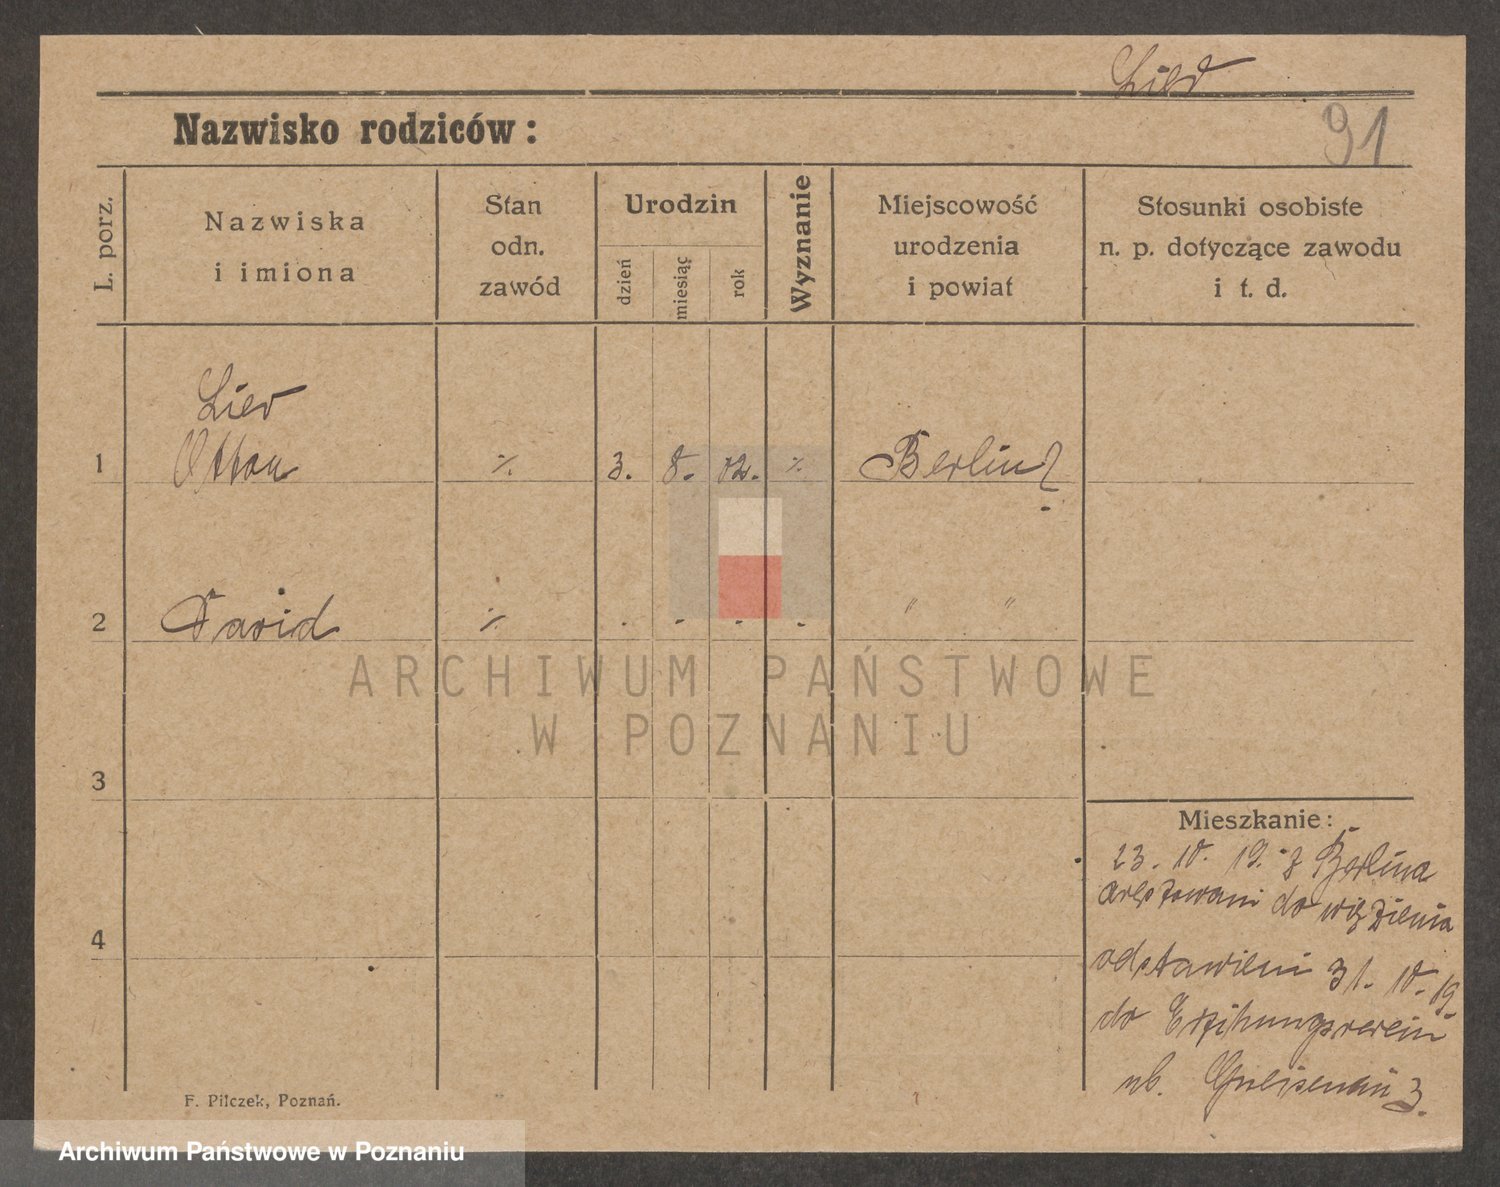 Lied
Nazwisko rodziców:
91
L. porz.
Nazwiska
i imiona
Stan
odn.
zawód
Urodzin
dzień
miesiąc
rok
Wyznanie
Miejscowość
urodzenia
i powiat
Stosunki osobiste
n. p. dotyczące zawodu
i t. d.
Lied
1 Otton % 3. 8. 02. % Berlin?
2 David % . - - - " "
3
4
Mieszkanie:
23. 10. 19. z Berlina
aresztowani do więzienia
odstawieni 31. 10. 19
do
ul. Gneisenau 3.
F. Pilczek, Poznań.
ARCHIWUM PAŃSTWOWE
W POZNANIU
Archiwum Państwowe w Poznaniu